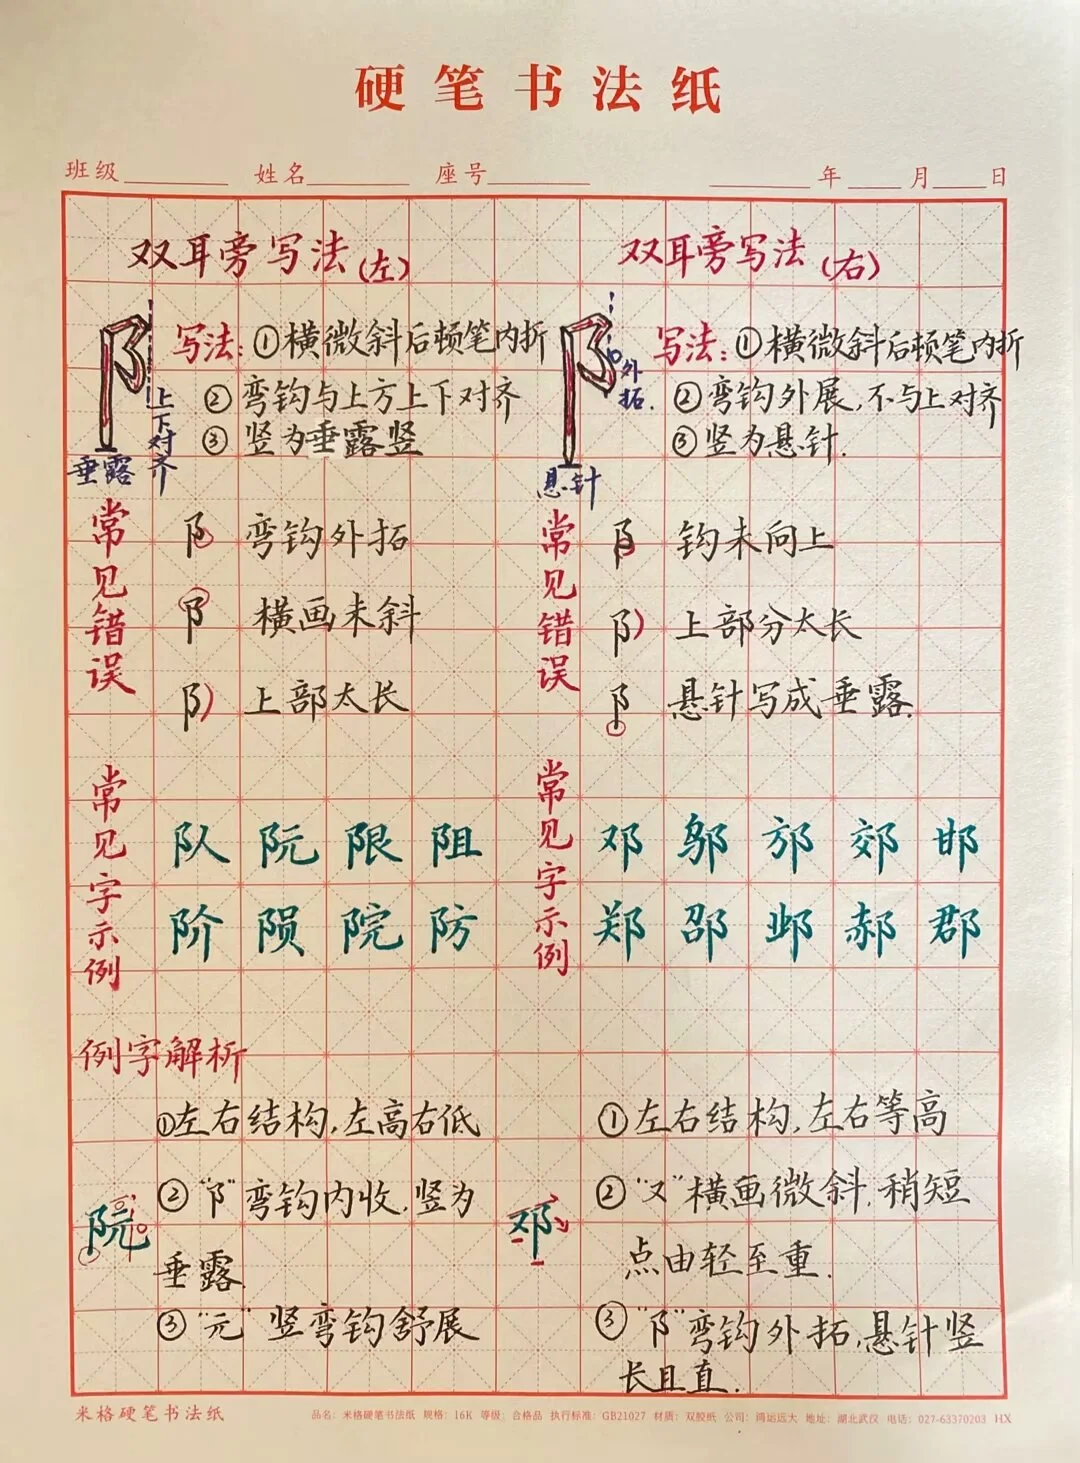 硬笔书法纸
班级 姓名 座号 年 月 日
双耳旁写法(左)
写法:①横微斜后顿笔内折
②弯钩与上方上下对齐
③竖为垂露竖
上下对齐
垂露
常见错误
阝 弯钩外拓
阝 横画未斜
阝 上部太长
常见字示例
队 阮 限 阻
阶 陨 院 防
双耳旁写法(右)
写法:①横微斜后顿笔内折
②弯钩外展,不与上对齐
③竖为悬针.
外拓.
悬针
常见错误
阝 钩未向上
阝 上部分太长
阝 悬针写成垂露.
常见字示例
邓 邬 邡 郊 邯
郑 邵 邺 郝 郡
例字解析
阮
①左右结构,左高右低
②“阝”弯钩内收.竖为
垂露.
③“元”竖弯钩舒展
邓
①左右结构,左右等高
②“又”横画微斜.稍短
点由轻至重.
③“阝”弯钩外拓,悬针竖
长且直.
米格硬笔书法纸
品名:米格硬笔书法纸 规格:16K 等级:合格品 执行标准:GB21027 材质:双胶纸 公司:鸿运远大 地址:湖北武汉 电话:027-63370203 HX